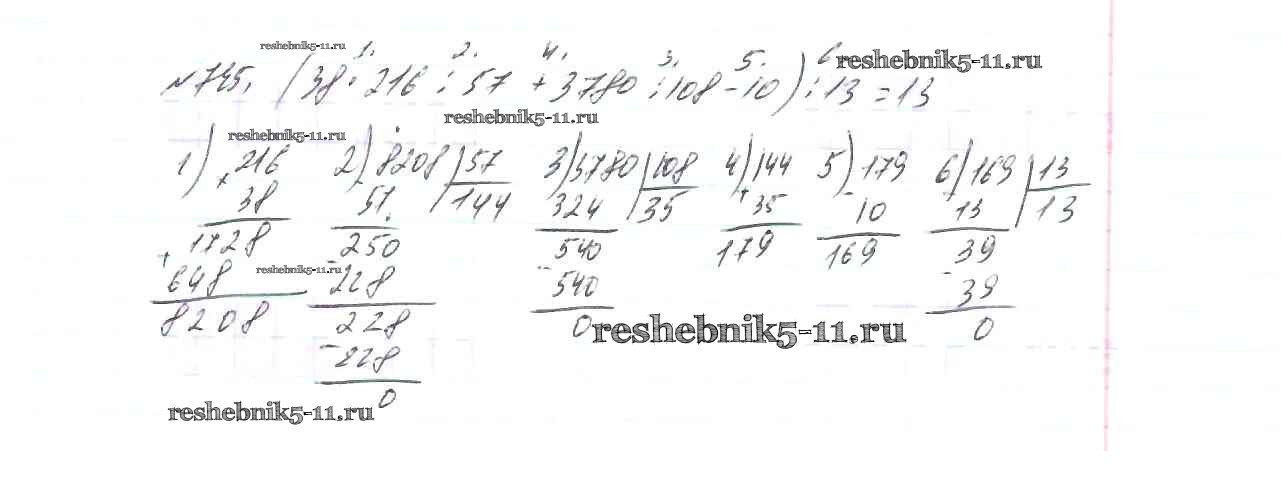 reshebnik5-11.ru
1. 2. 4. 3. 5. 6
№745. (38 · 216 : 57 + 3780 : 108 - 10) : 13 = 13
reshebnik5-11.ru
reshebnik5-11.ru
reshebnik5-11.ru
1) 216 2) 8208 | 57 3) 3780 | 108 4) 144 5) 179 6) 169 | 13
× 38 - 57 144 324 35 + 35 - 10 - 13 13
1728 250 540 179 169 39
+ 648 - 228 - 540 - 39
reshebnik5-11.ru
8208 228 0 0
reshebnik5-11.ru
- 228
0
reshebnik5-11.ru